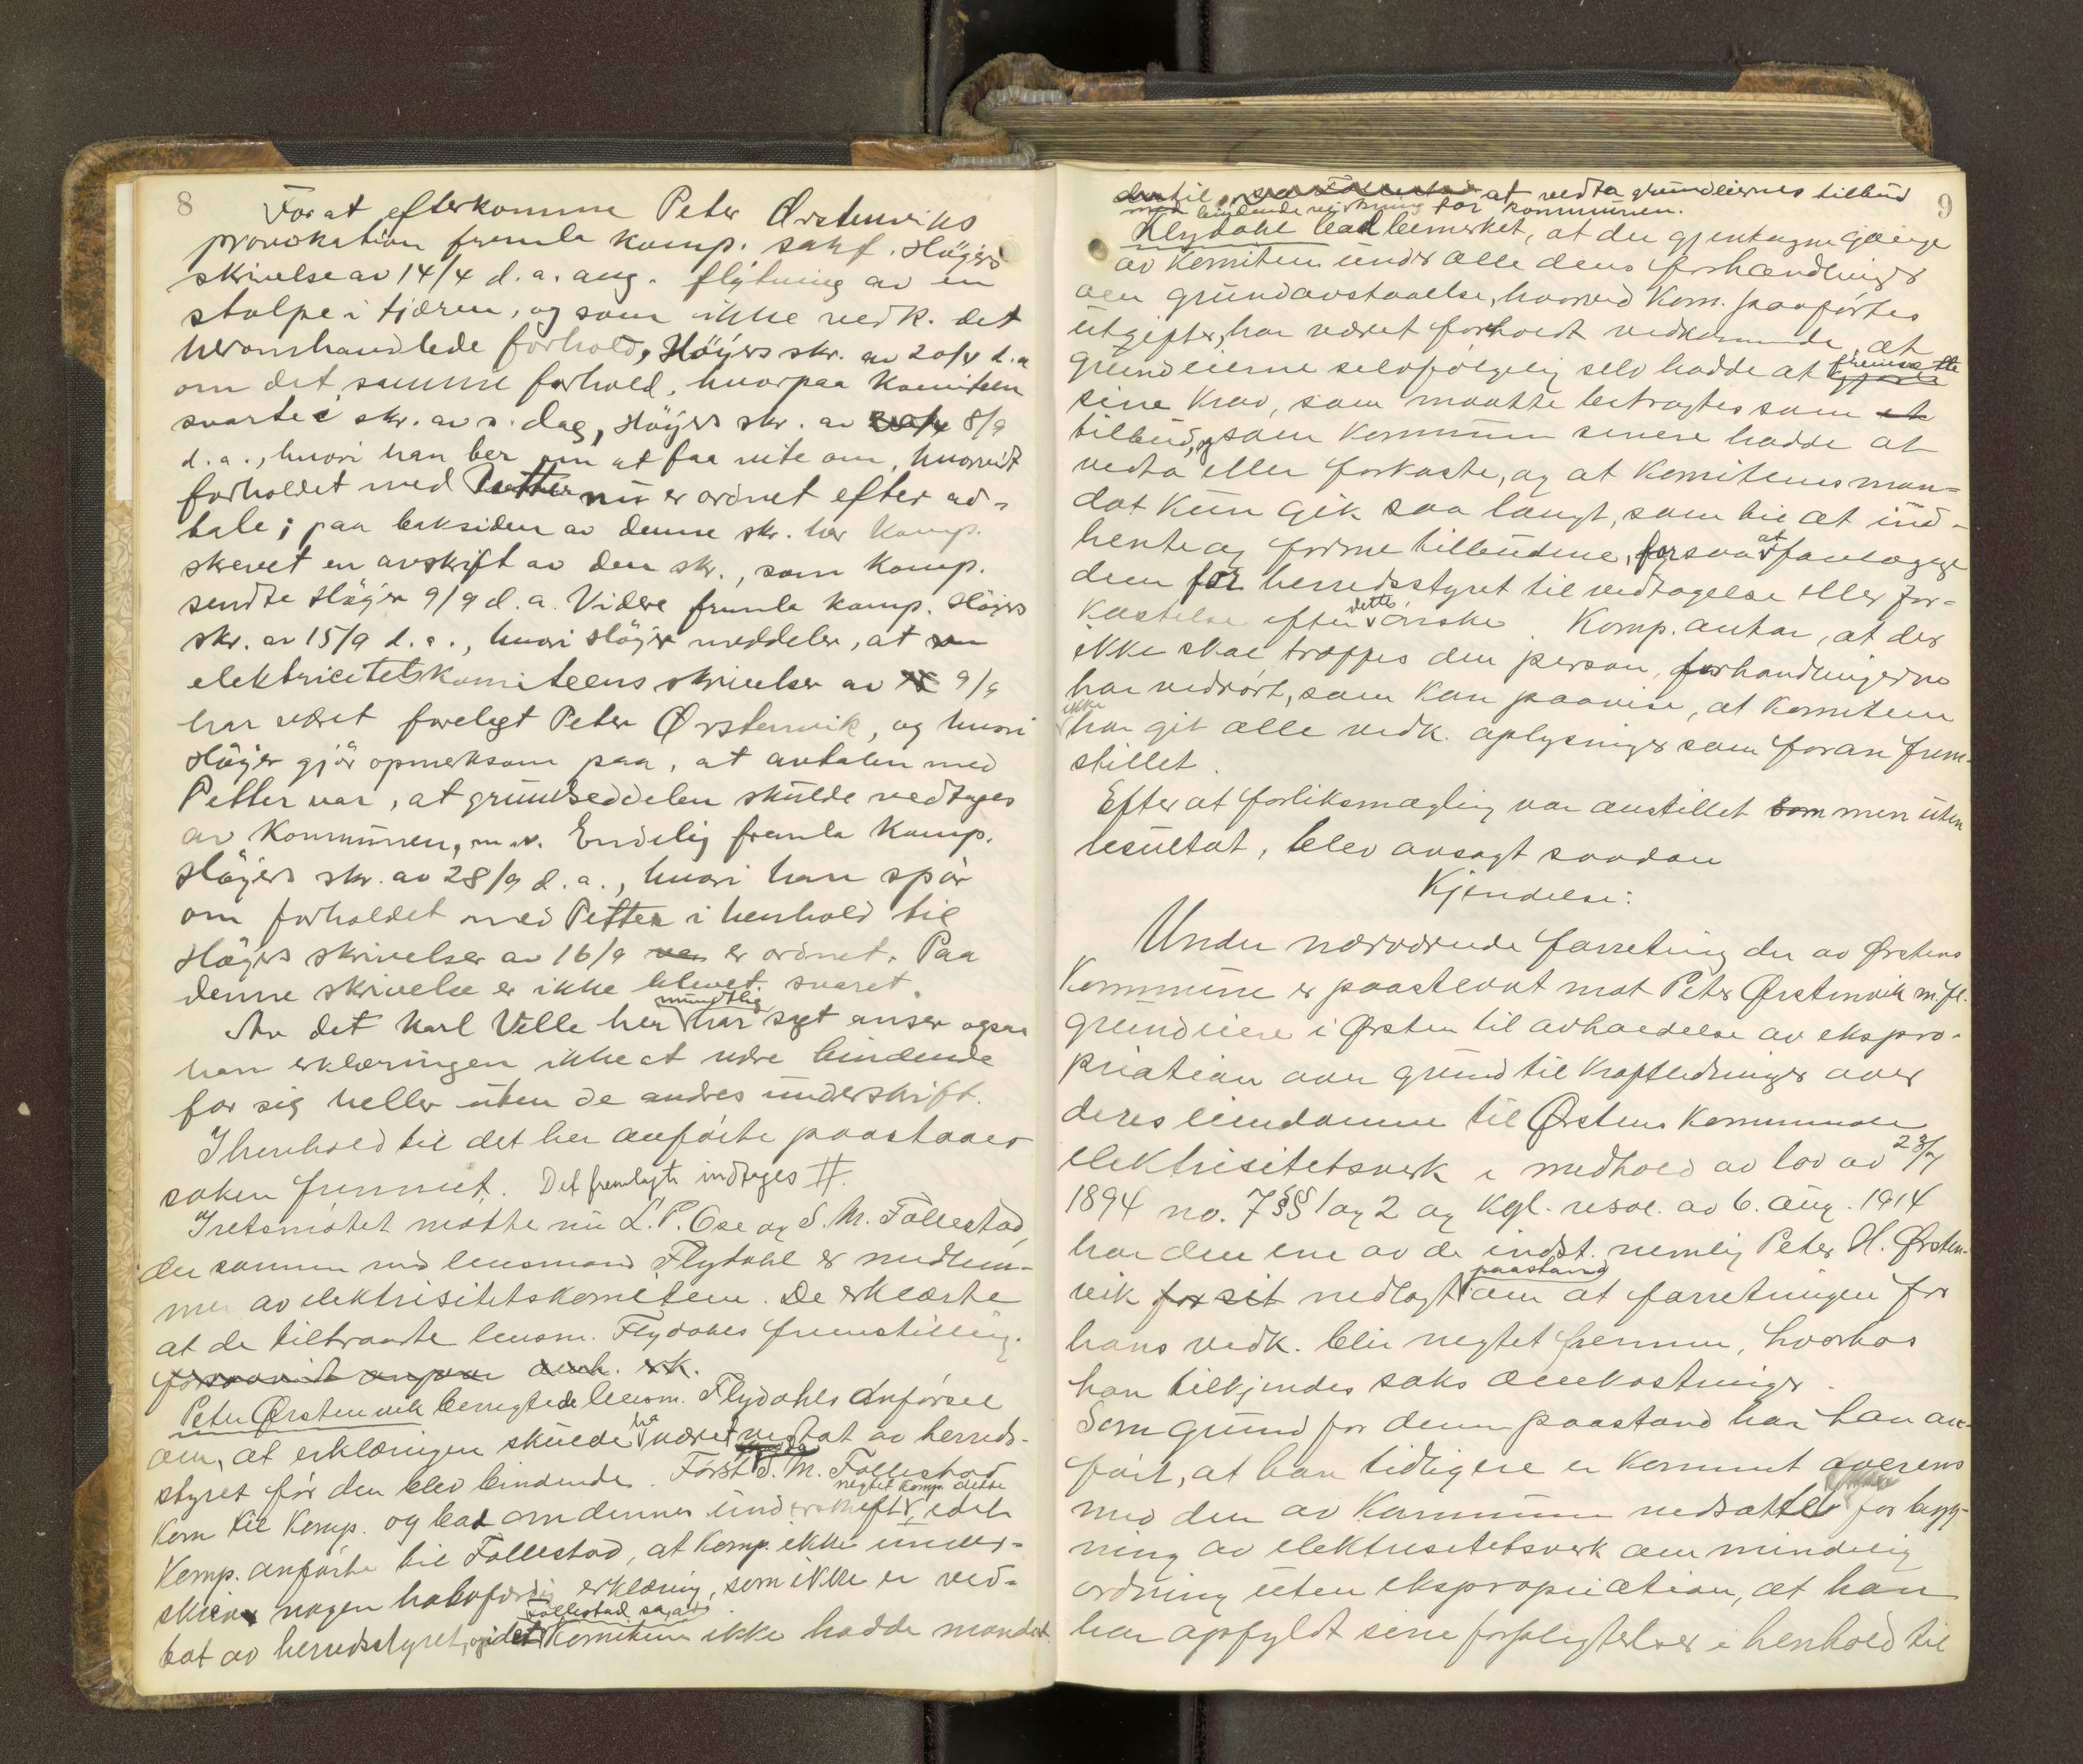 8
For at efterkomme Peter Ørstenviks
provokation fremla komp. sakf. Höyers
skrivelse av 14/4 d.a. ang. flytning av en
stolpe i tjören, og som ikke vedk. det
heromhandlede forhold, Höyers skr. av 20/4 d.a
om det samme forhold, hvorpaa komiteen
svarte i skr. av s. dag, Höyers skr. av 8/9
d.a., hvori han ber om at faa vite om, hvorvidt
forholdet med Petter nu er ordnet efter av-
tale; paa baksiden av denne skr. har komp.
skrevet en avskrift av den skr., som komp.
sendte Höyer 9/9 d.a. Videre fremla komp. Höyers
skr. av 15/9 d.a., hvori Höyer meddeler, at
elektricitetskomiteens skrivelse av 9/9
har været forelagt Peter Ørstenvik, og hvori
Höyer gjör opmerksom paa, at avtalen med
Petter var, at grundseddelen skulde vedtages
av kommunen, m.v. Endelig fremla komp.
Höyers skr. av 28/9 d.a., hvori han spör
om forholdet med Petter i henhold til
Höyers skrivelse av 16/9 er ordnet. Paa
denne skrivelse er ikke blevet svaret.
Av det Karl Velle her mundtlig har sagt anser ogsaa
han erklæringen ikke at være bindende
for sig heller uten de andres underskrift.
I henhold til det her anförte paastaaes
saken fremmet. Det fremlagte indtages #.
I retsmötet mötte nu L. P. Ose og S. M. Follestad,
der sammen med lensmand Flydahl er medlem-
mer av elektrisitetskomiteen. De erklærte
at de tiltraadte lensm. Flydahls fremstilling.
Peter Ørstenvik benegtede lensm. Flydahls anförsel
om, at erklæringen skulde ha været vedtat av herreds-
styret för den blev bindende. Först S. M. Follestad
kom til komp. og bad om dennes underskrift, negtet komp. dette idet
komp. anförte til Follestad, at komp. ikke under-
skrev nogen halvfærdig erklæring, som ikke er ved-
tat av herredsstyret, og idet Follestad sa, at komiteen ikke hadde mandat
9
dertil at vedta grundeiernes tilbud
med bindende virkning for kommunen.
Flydahl bad bemerket, at der gjentagne gange
av komiteen under alle dens forhandlinger
om grundavstaaelse, hvorved kom. paaförtes
utgifter, har været forholdt vedkommende, at
grundeierne selvfölgelig selv hadde at fremsætte
sine krav, som maatte betragtes som
tilbud, og som kommunen senere hadde at
vedta eller forkaste, og at komiteens man-
dat kun gik saa langt, som til at ind-
hente og forme tilbudene, for saa at forelægge
dem for herredsstyret til vedtagelse eller for-
kastelse efter dettes önske. Komp. antar, at der
ikke skal træffes den person, forhandlingerne
har vedrört, som kan paavise, at komiteen
ikke har git alle vedk. oplysninger som foran frem-
stillet.
Efter at forliksmægling var anstillet men uten
resultat, blev avsagt saadan
Kjendelse:
Under nærværende forretning der av Ørstens
Kommune er paastevnt mot Peter Ørstenvik m. fl.
grundeiere i Ørsten til avholdelse av ekspro-
priation over grund til kraftledninger over
deres eiendomme til Ørstens kommunale
elektrisitetsverk i medhold av lov av 23/7
1894 no. 7 §§ 1 og 2 og kgl. resol. av 6. aug. 1914
har den ene av de indst. nemlig Peter H. Ørsten-
vik nedlagt paastand om at forretningen for
hans vedk. blir negtet fremme, hvorhos
han tilkjendes saks omkostninger.
Som grund for denne paastand har han an-
fört, at han tidligere er kommet overens
med den av kommunen nedsatte for byg-
ning av elektrisitetsverk om mindelig
ordning uten ekspropriation, at han
har opfyldt sine forpligtelser i henhold til